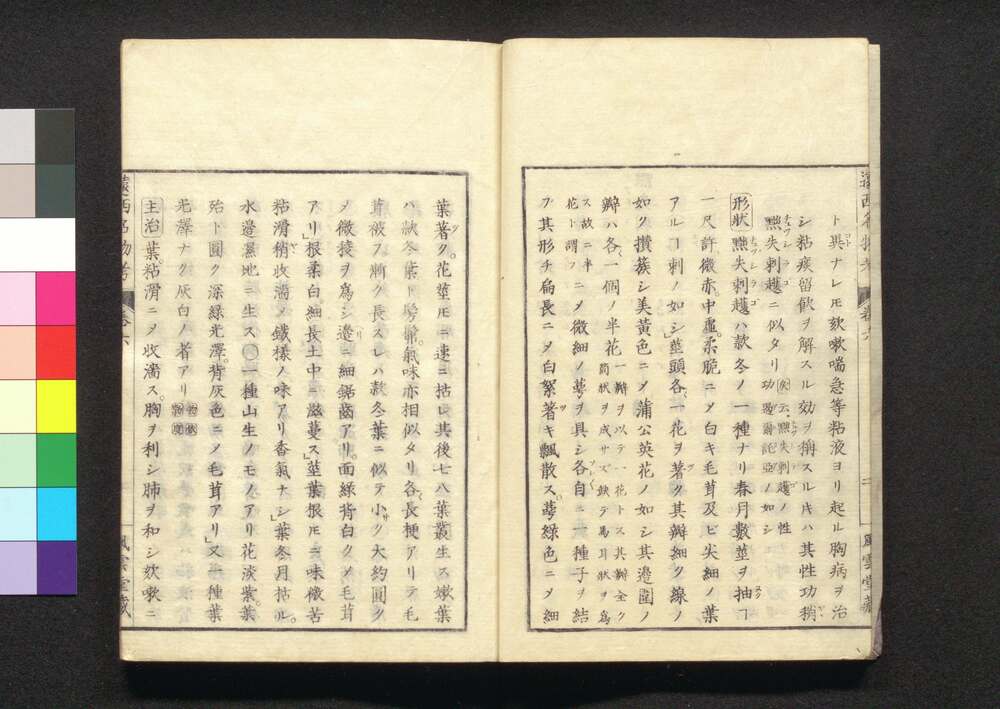 ト異ナレモ欬嗽喘急等粘液ヨリ起ル胸病ヲ治
シ粘痰留飲ヲ解スル効ヲ稱スルキハ其性功稍
㸃失刺越ニ似タリ
云㸃失刺越ノ性
功覆爾託亞ノ如シ
形狀 㸃失刺越ハ款冬ノ一種ナリ春月數莖ヲ抽ヿ
一尺許微赤中虛柔脆ニメ白キ毛茸及ビ尖細ノ葉
アルヿ刺ノ如シ莖頭各一花ヲ著ク其瓣細ク線ノ
如ク攢簇シ美黃色ニメ蒲公英花ノ如シ其邊圍ノ
瓣ハ各一個ノ半花
一瓣ヲ以テ一花トス其瓣全ク
筒狀ヲ成サズ缺テ馬耳狀ヲ爲
ス故ニ半
花ト謂フ
ニメ微細ノ萼ヲ具シ各自ニ一種子ヲ結
フ其形チ扁長ニメ白絮著キ飄散ス萼綠色ニメ細
遠西名物考 卷六
風雲堂藏
葉著ク花莖モニ速ニ枯レ其後七八葉叢生ス嫩葉
ハ款冬葉ト髣髴氣味亦相似タリ各長梗アリテ毛
茸被フ漸ク長スレハ款冬葉ニ似テ小ク大約圓ク
メ微稜ヲ爲シ邊ニ細鋸齒アリ面綠背白クメ毛茸
アリ根柔白細長土中ニ滋蔓ス莖葉根モニ味微苦
粘滑稍收濇メ鐵樣ノ味アリ香氣ナシ葉冬月枯ル
水邊濕地ニ生ス○一種山生ノモノアリ花淡紫葉
殆ト圓ク深綠光澤背灰色ニメ毛茸アリ又一種葉
光澤ナク灰白ノ者アリ
主治 葉粘滑ニメ收濇ス胸ヲ利シ肺ヲ和シ欬嗽ニ